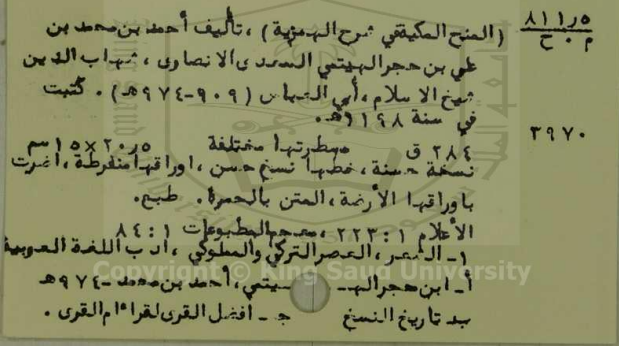 ٨١١٫٥
م . ح
(المنح المكية في شرح الهمزية) ، تأليف أحمد بن محمد بن
علي بن حجر الهيتمي السعدي الانصاري ، شهاب الدين
شيخ الاسلام ، أبي العباس (٩٠٩-٩٧٤هـ) . كتبت
في سنة ١١٩٨هـ.
٣٩٧٠
٢٨٤ ق مسطرتها مختلفة ٢٠٫٥×١٥سم
نسخة حسنة ، خطها نسخ حسن ، اوراقها منفرطة ، اضرت
باوراقها الأرضة ، المتن بالحمرة . طبع.
الأعلام ١ : ٢٢٣ ، معجم المطبوعات ١ : ٨٤
١- الشعر ، العصر التركي والمملوكي ، أدب اللغة العربية
أ- ابن حجر الهيتمي ، أحمد بن محمد -٩٧٤هـ
ب- تاريخ النسخ جـ - افضل القرى لقراء ام القرى .
Copyright © King Saud University